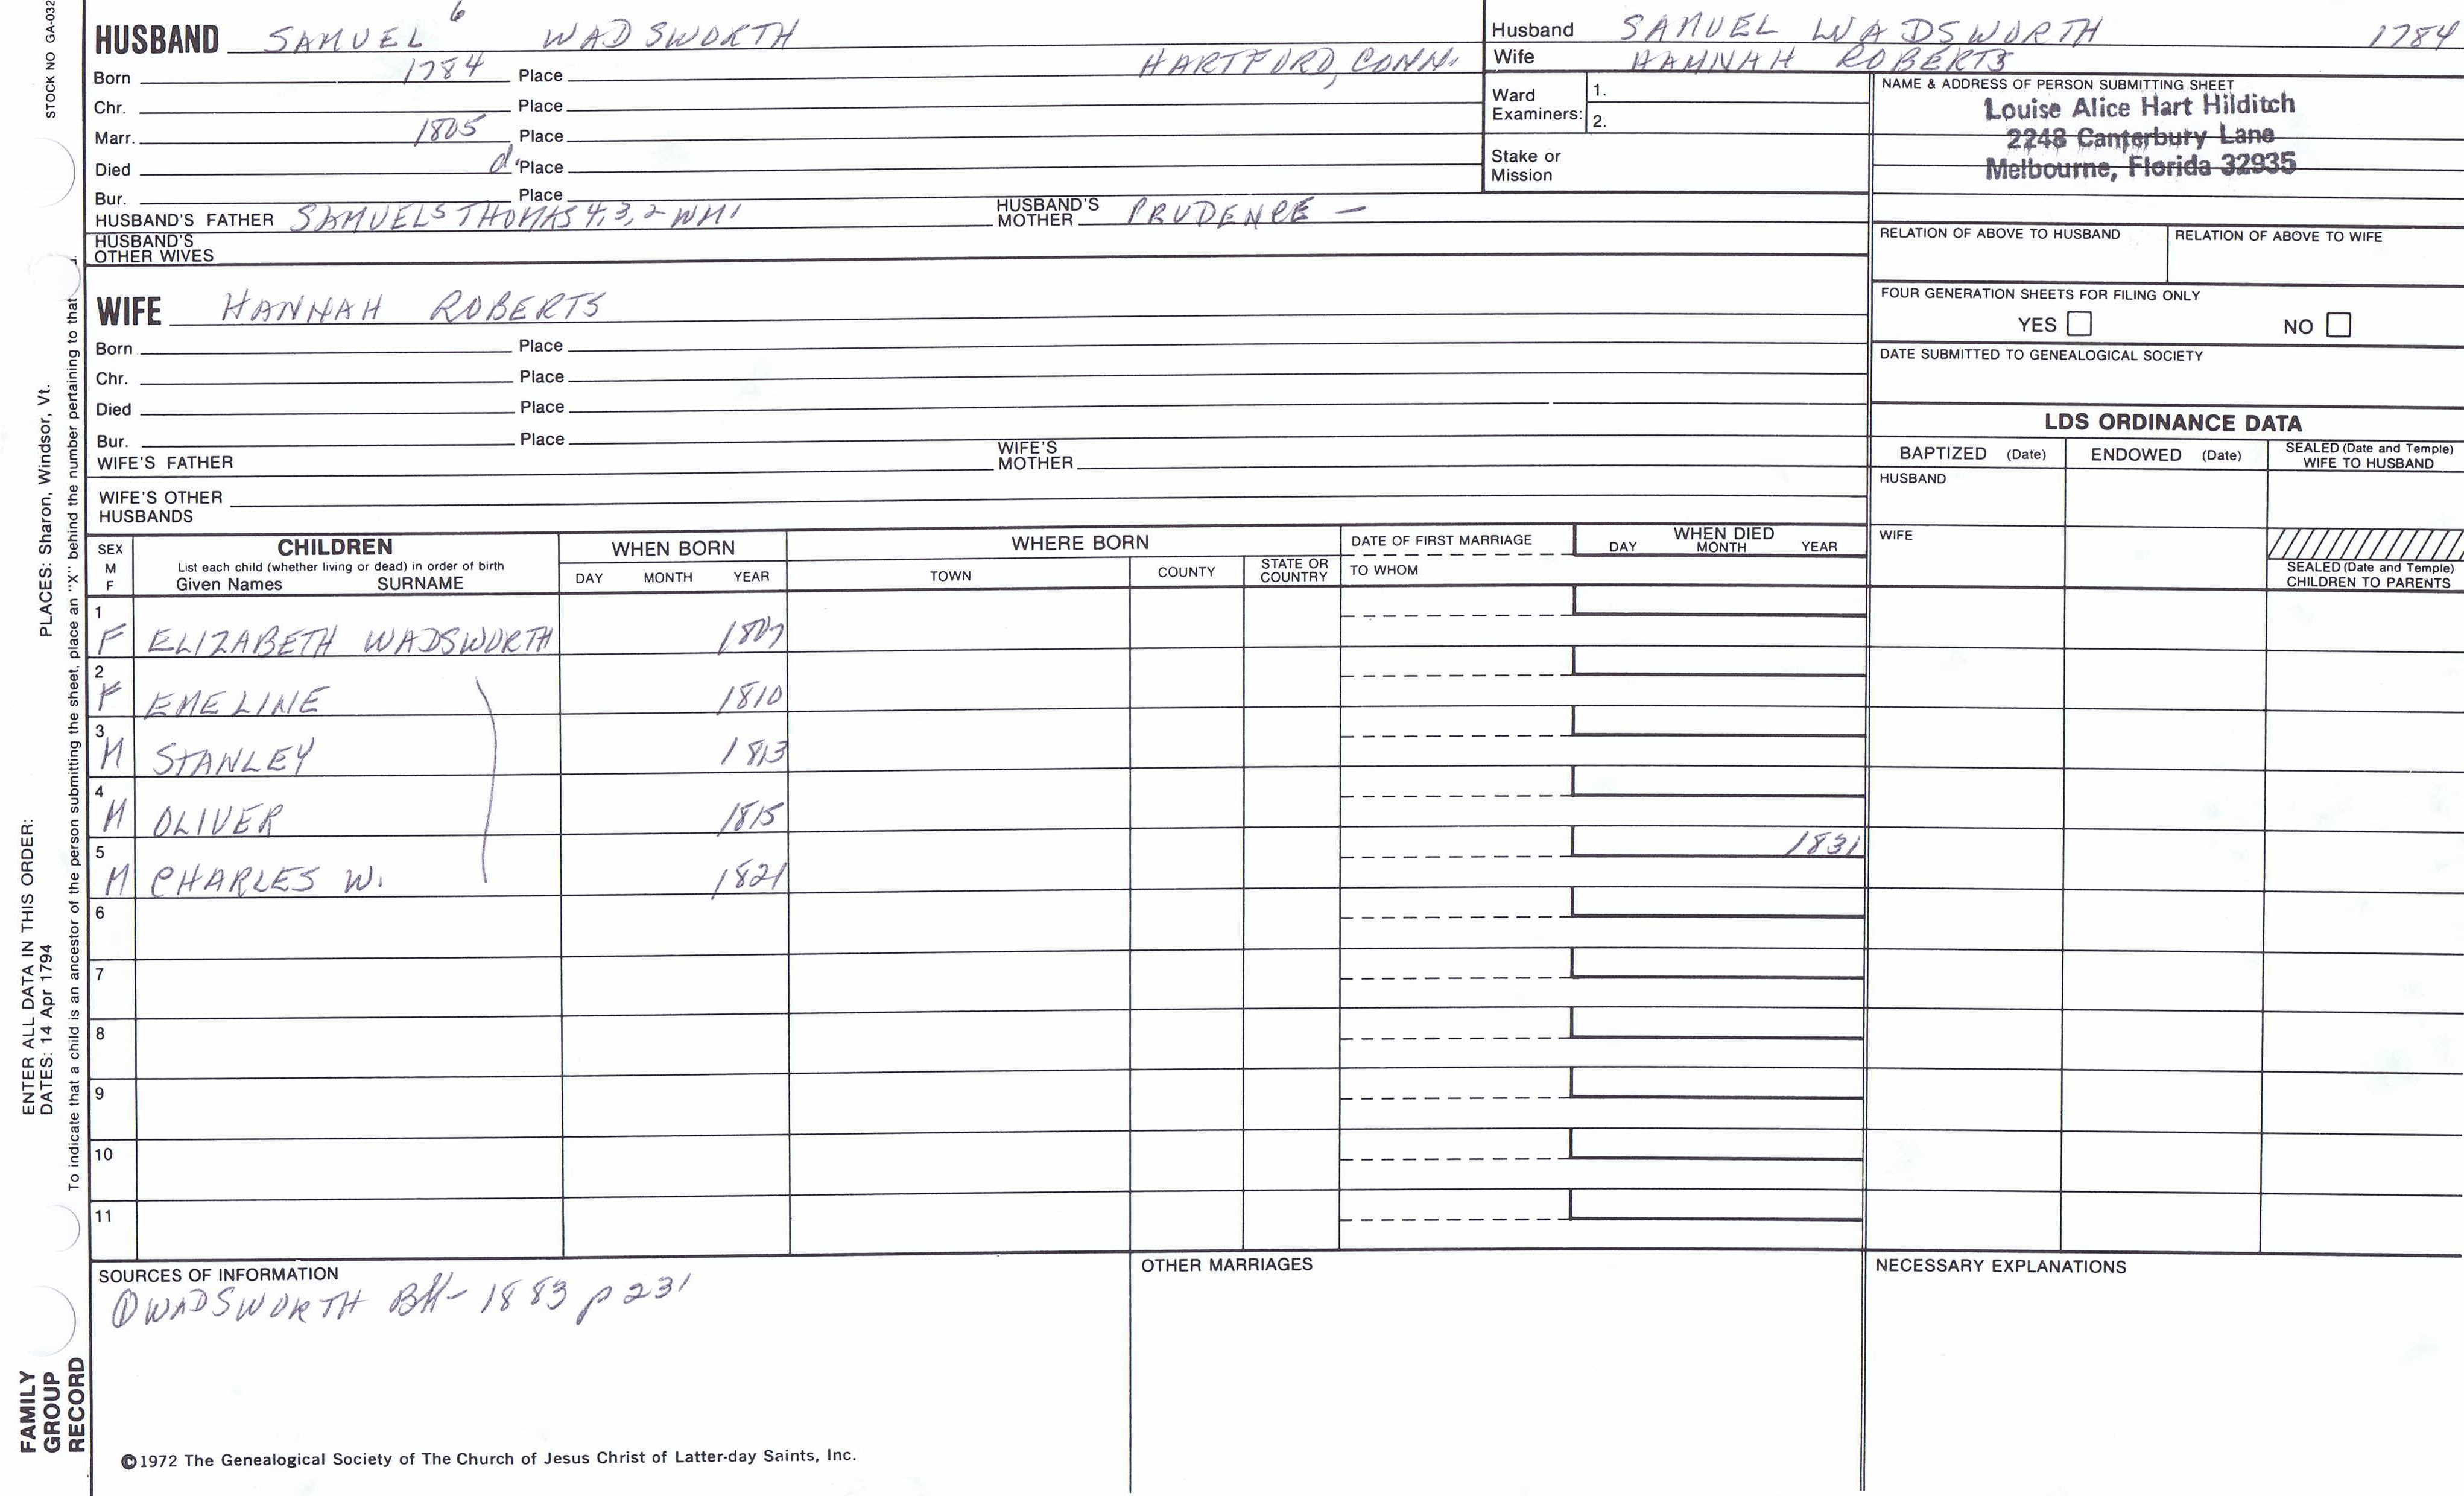 STOCK NO GA-032
PLACES: Sharon, Windsor, Vt.
To indicate that a child is an ancestor of the person submitting the sheet, place an "X" behind the number pertaining to that
ENTER ALL DATA IN THIS ORDER:
DATES: 14 Apr 1794
FAMILY
GROUP
RECORD
HUSBAND SAMUEL 6 WADSWORTH
Born 1784 Place HARTFORD, CONN.
Chr. Place
Marr. 1805 Place
Died d. Place
Bur. Place
HUSBAND'S FATHER SAMUEL5 THOMAS 4,3,2 WM1 HUSBAND'S MOTHER PRUDENCE —
HUSBAND'S
OTHER WIVES
WIFE HANNAH ROBERTS
Born Place
Chr. Place
Died Place
Bur. Place
WIFE'S FATHER WIFE'S MOTHER
WIFE'S OTHER
HUSBANDS
Husband SAMUEL WADSWORTH 1784
Wife HANNAH ROBERTS
Ward
Examiners:
1.
2.
Stake or
Mission
NAME & ADDRESS OF PERSON SUBMITTING SHEET
Louise Alice Hart Hilditch
2248 Canterbury Lane
Melbourne, Florida 32935
RELATION OF ABOVE TO HUSBAND RELATION OF ABOVE TO WIFE
FOUR GENERATION SHEETS FOR FILING ONLY
YES NO
DATE SUBMITTED TO GENEALOGICAL SOCIETY
LDS ORDINANCE DATA
BAPTIZED (Date) ENDOWED (Date) SEALED (Date and Temple)
WIFE TO HUSBAND
HUSBAND
WIFE
SEALED (Date and Temple)
CHILDREN TO PARENTS
SEX
M
F
CHILDREN
List each child (whether living or dead) in order of birth
Given Names SURNAME
WHEN BORN
DAY MONTH YEAR
WHERE BORN
TOWN COUNTY STATE OR COUNTRY
DATE OF FIRST MARRIAGE
TO WHOM
WHEN DIED
DAY MONTH YEAR
1
F ELIZABETH WADSWORTH 1807
2
F EMELINE 1810
3
M STANLEY 1813
4
M OLIVER 1815
5 1831
M CHARLES W. 1821
6
7
8
9
10
11
SOURCES OF INFORMATION
① WADSWORTH BK- 1883 p 231
OTHER MARRIAGES
NECESSARY EXPLANATIONS
©1972 The Genealogical Society of The Church of Jesus Christ of Latter-day Saints, Inc.